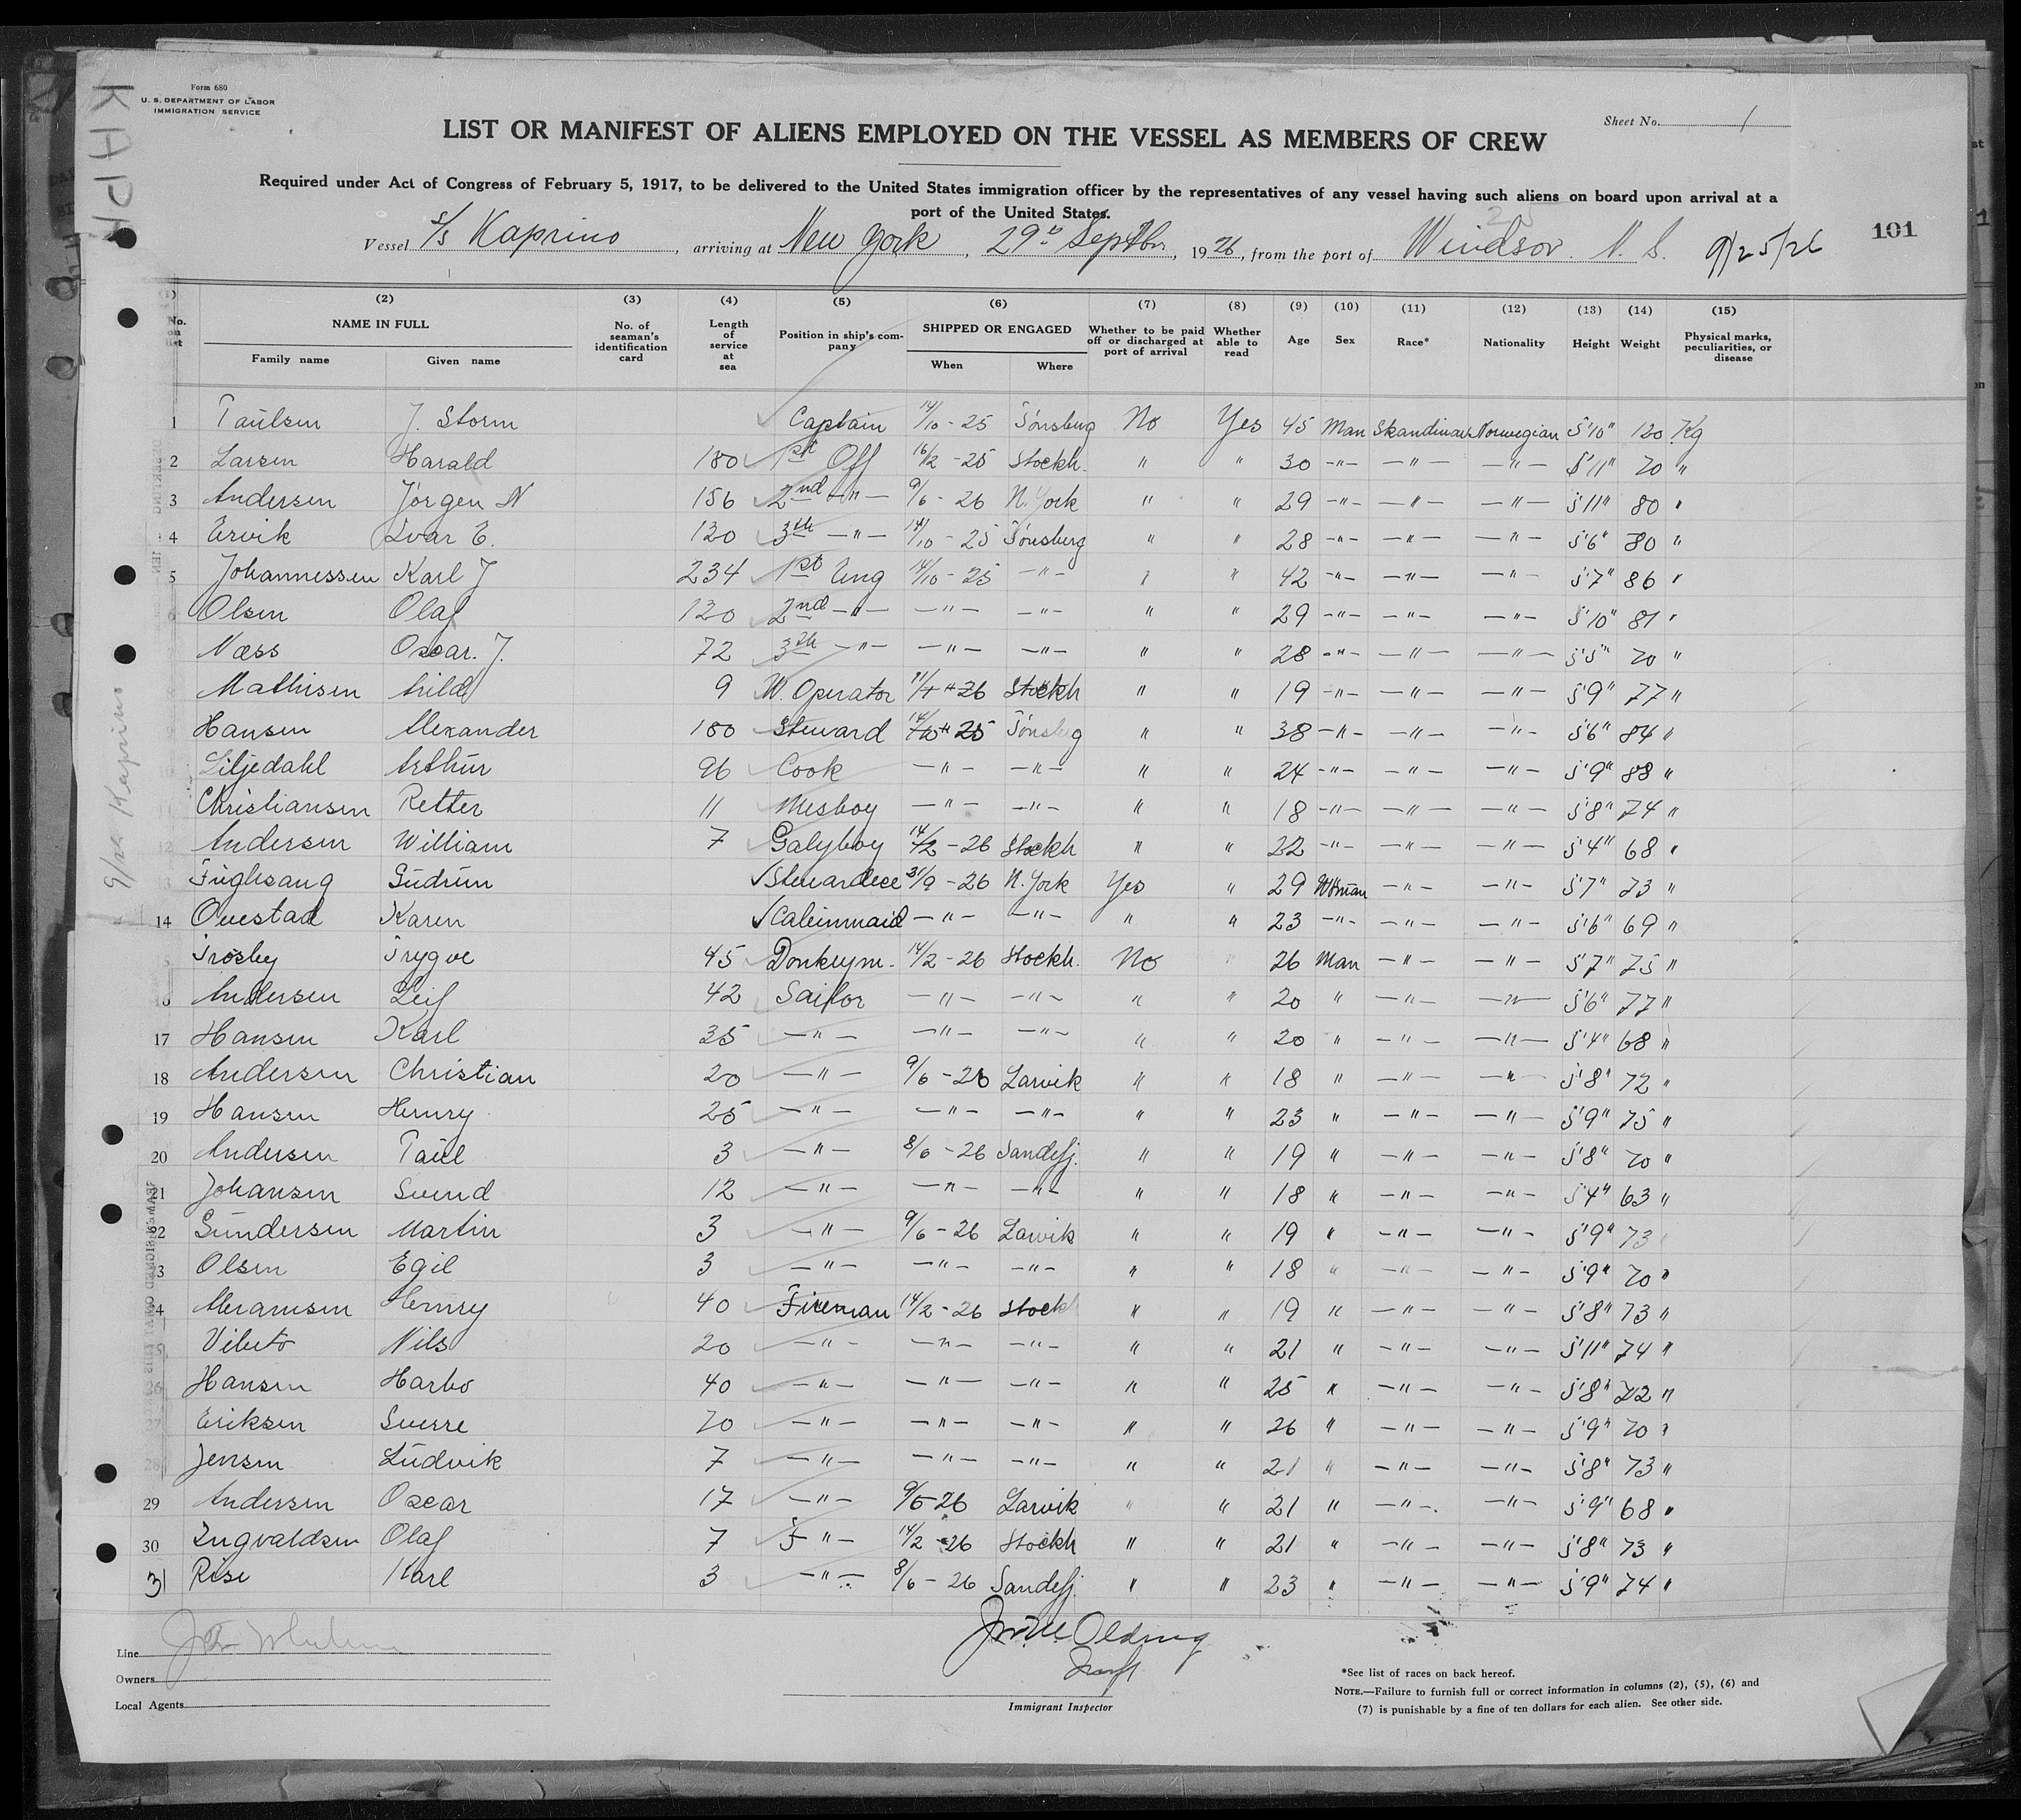 Form 680
U. S. DEPARTMENT OF LABOR
IMMIGRATION SERVICE
Sheet No. 1
LIST OR MANIFEST OF ALIENS EMPLOYED ON THE VESSEL AS MEMBERS OF CREW
Required under Act of Congress of February 5, 1917, to be delivered to the United States immigration officer by the representatives of any vessel having such aliens on board upon arrival at a
port of the United States.
Vessel S/s Kaprino, arriving at New York, 29th Septbr, 1926, from the port of Windsor. N. S. 9/25/26 101
(2) (3) (4) (5) (6) (7) (8) (9) (10) (11) (12) (13) (14) (15)
No. on list NAME IN FULL Family name Given name No. of seaman's identification card Length of service at sea Position in ship's company SHIPPED OR ENGAGED When Where Whether to be paid off or discharged at port of arrival Whether able to read Age Sex Race* Nationality Height Weight Physical marks, peculiarities, or disease
1 Paulsen J. Storm Captain 14/10 - 25 Tönsberg No Yes 45 Man Skandinav Norwegian 5'10" 120 Kg
2 Larsen Harald 180 1st Off 16/2 - 25 Stockh. " " 30 -"- -"- -"- 5'11" 70 "
3 Andersen Jörgen N 156 2nd -"- 9/6 - 26 N. York " " 29 -"- -"- -"- 5'11" 80 "
4 Ervik Ivar E. 120 3th -"- 14/10 - 25 Tönsberg " " 28 -"- -"- -"- 5'6" 80 "
5 Johannessen Karl J 234 1st Eng 14/10 - 25 -"- " " 42 -"- -"- -"- 5'7" 86 "
6 Olsen Olaf 120 2nd -"- -"- -"- " " 29 -"- -"- -"- 5'10" 81 "
Næss Oscar. J. 72 3th -"- -"- -"- " " 28 -"- -"- -"- 5'5" 70 "
Mathisen Arild 9 W. Operator 26 Stockh " " 19 -"- -"- -"- 5'9" 77 "
Hansen Alexander 180 Steward 14/10 25 Tönsberg " " 38 -"- -"- -"- 5'6" 84 "
Liljedahl Arthur 96 Cook -"- -"- " " 24 -"- -"- -"- 5'9" 88 "
Christiansen Retter 11 Mesboy -"- -"- " " 18 -"- -"- -"- 5'8" 74 "
12 Andersen William 7 Galyboy 14/2 - 26 Stockh " " 22 -"- -"- -"- 5'4" 68 "
Fuglesang Gudrun Stewardece 31/9 - 26 N. York Yes " 29 Woman -"- -"- 5'7" 73 "
14 Ouestad Karen Cabinmaid -"- -"- " " 23 -"- -"- -"- 5'6" 69 "
Trosby Trygve 45 Donkeym. 14/2 - 26 Stockh. No " 26 Man -"- -"- 5'7" 75 "
Andersen Leif 42 Sailor -"- -"- " " 20 " -"- -"- 5'6" 77 "
17 Hansen Karl 35 -"- -"- -"- " " 20 " -"- -"- 5'4" 68 "
18 Andersen Christian 20 -"- 9/6 - 26 Larvik " " 18 " -"- -"- 5'8" 72 "
19 Hansen Henry 25 -"- -"- -"- " " 23 " -"- -"- 5'9" 75 "
20 Andersen Paul 3 -"- 8/6 - 26 Sandefj. " " 19 " -"- -"- 5'8" 70 "
21 Johansen Svend 12 -"- -"- -"- " " 18 " -"- -"- 5'4" 63 "
22 Gundersen Martin 3 -"- 9/6 - 26 Larvik " " 19 " -"- -"- 5'9" 73
Olsen Egil 3 -"- -"- -"- " " 18 " -"- -"- 5'9" 70 "
Abramsen Henry 40 Fireman 14/2 - 26 Stock " " 19 " -"- -"- 5'8" 73 "
Nils 20 -"- -"- -"- " " 21 " -"- -"- 5'11" 74 "
26 Hansen Harbo 40 -"- -"- -"- " " 25 " -"- -"- 5'8" 72 "
27 Eriksen Sverre 70 -"- -"- -"- " " 26 " -"- -"- 5'9" 70 "
28 Jensen Ludvik 7 -"- -"- -"- " " 21 " -"- -"- 5'8" 73 "
29 Andersen Oscar 17 -"- 9/6-26 Larvik " " 21 " -"- -"- 5'9" 68 "
30 Ingvaldsen Olaf 7 -"- 14/2 - 26 Stockh " " 21 " -"- -"- 5'8" 73 "
31 Rise Karl 3 -"- 8/6 - 26 Sandefj. " " 23 " -"- -"- 5'9" 74 "
Line
Owners
Local Agents
Immigrant Inspector
*See list of races on back hereof.
NOTE.—Failure to furnish full or correct information in columns (2), (5), (6) and
(7) is punishable by a fine of ten dollars for each alien. See other side.